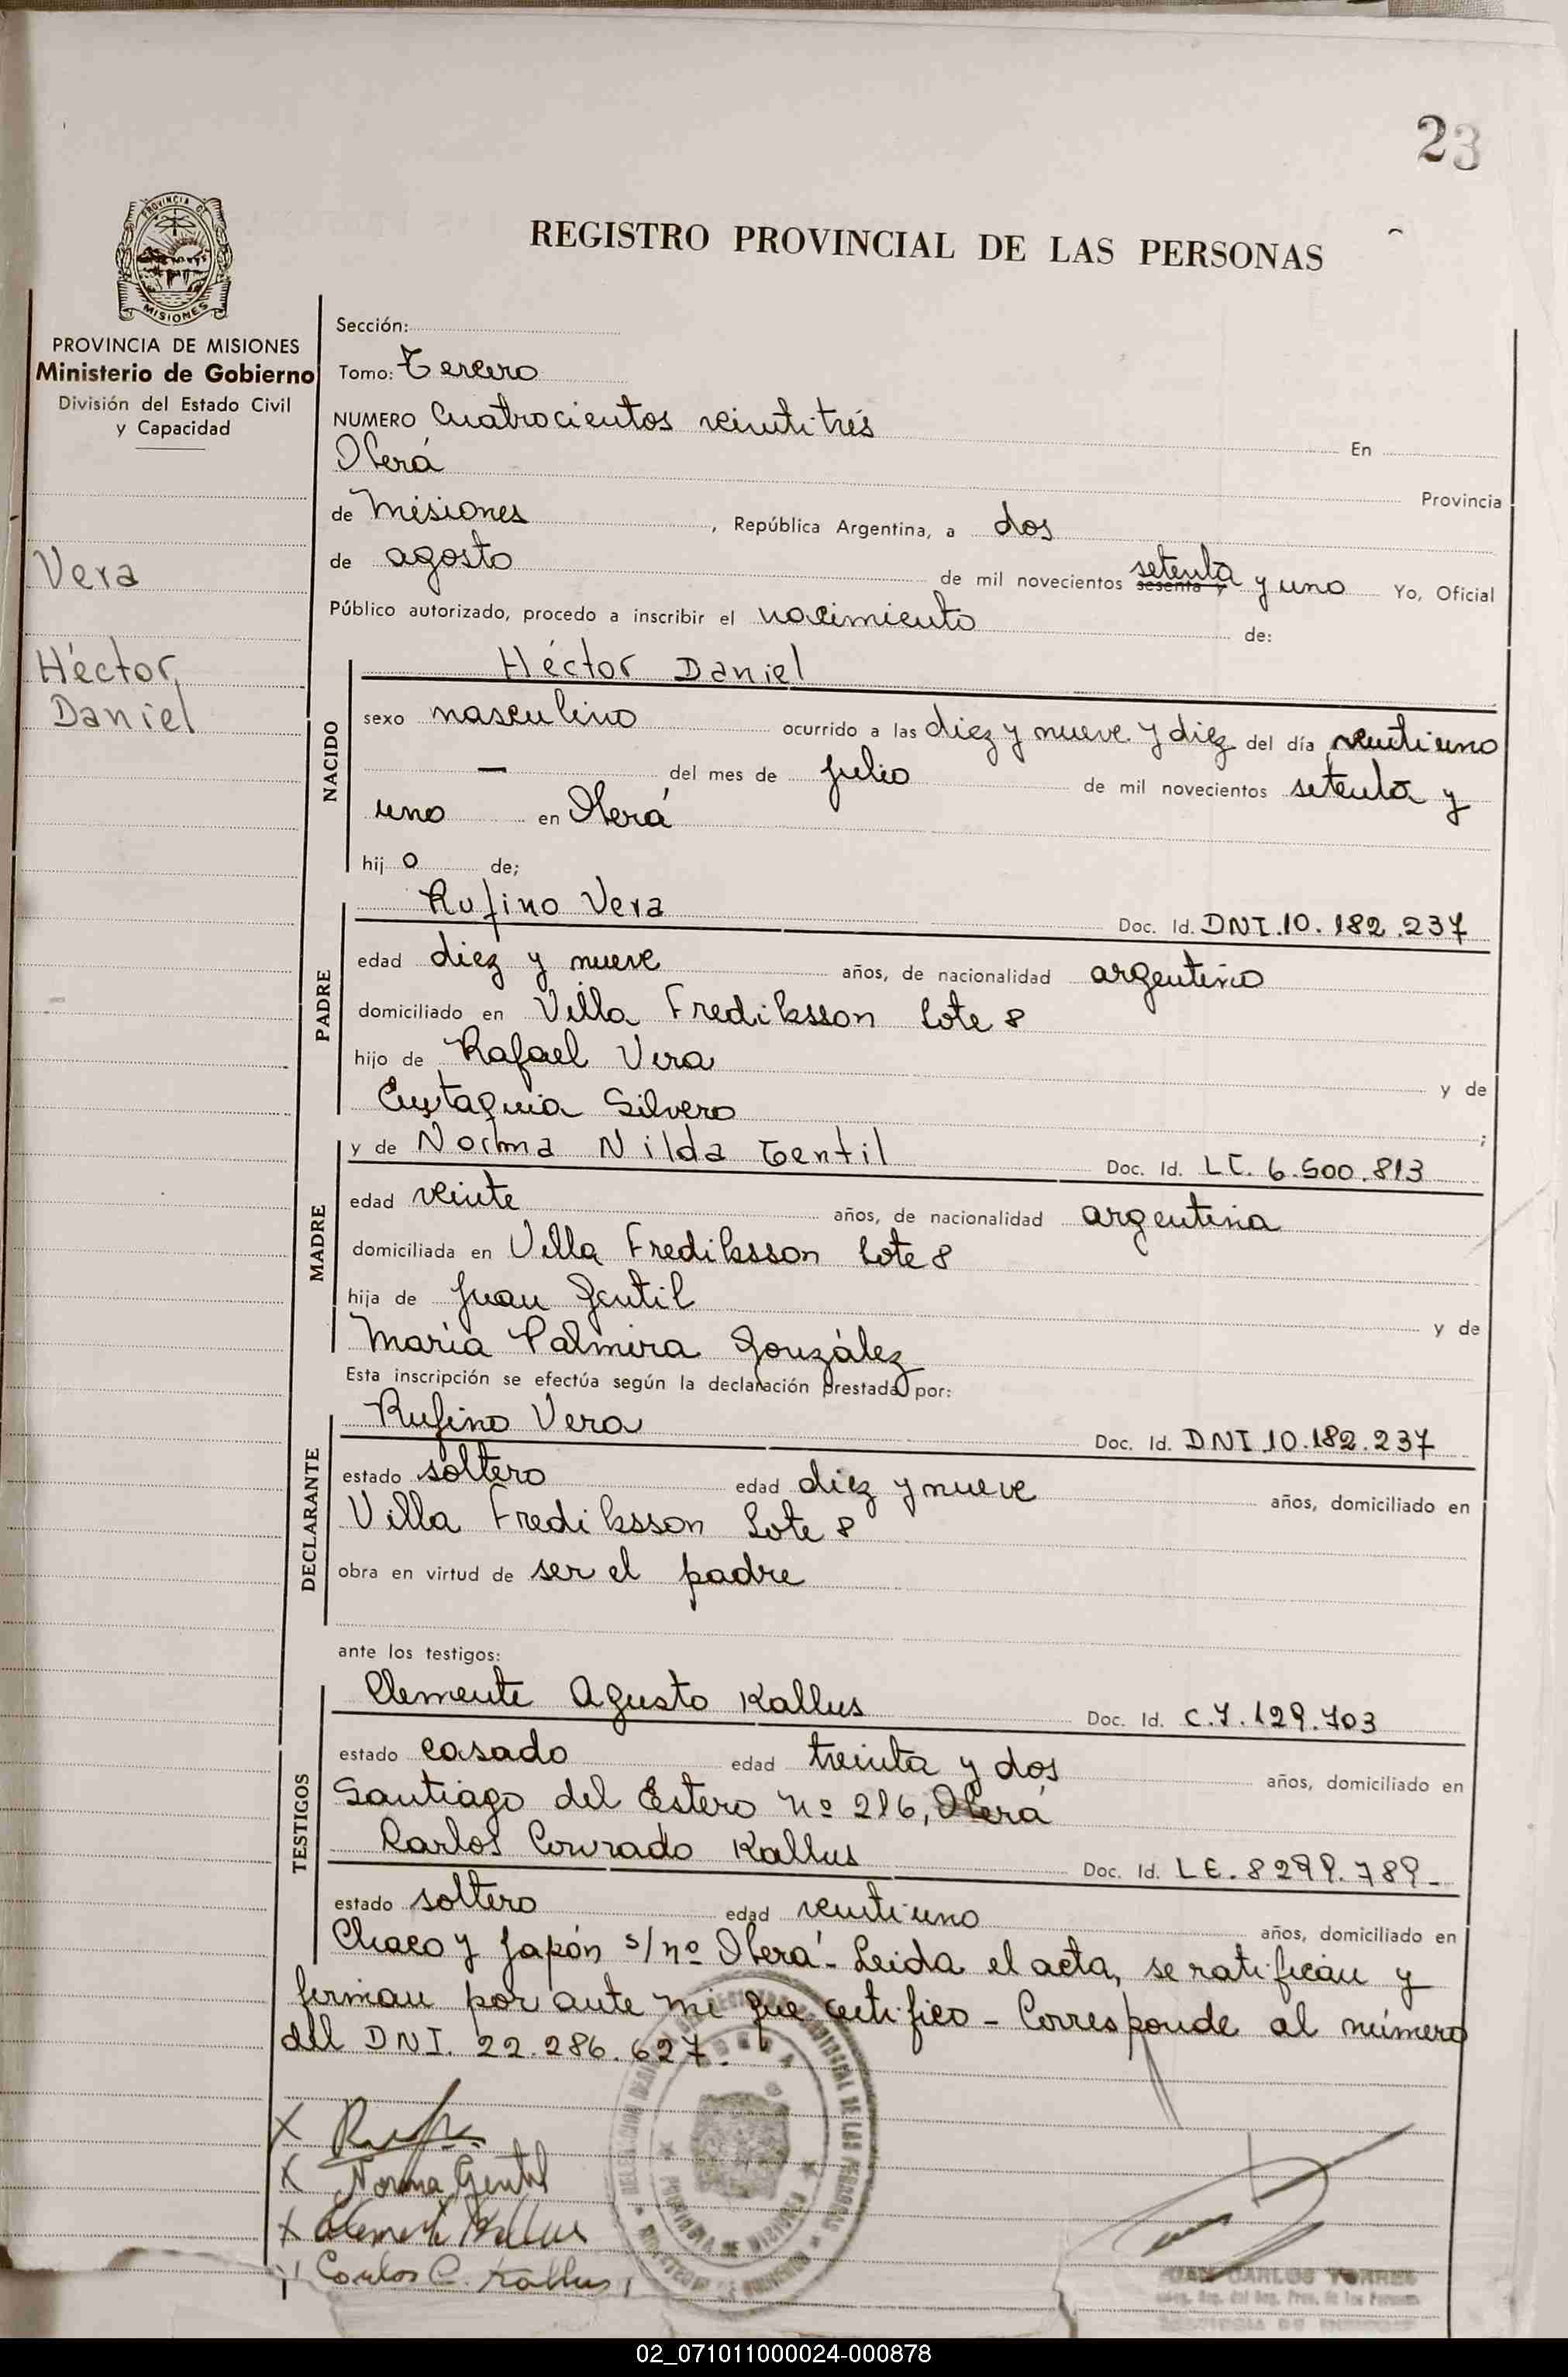 23
PROVINCIA DE
MISIONES
REGISTRO PROVINCIAL DE LAS PERSONAS
PROVINCIA DE MISIONES
Ministerio de Gobierno
División del Estado Civil
y Capacidad
Vera
Héctor
Daniel
Sección:
Tomo: Tercero
NUMERO Cuatrocientos veintitrés En
Oberá Provincia
de Misiones, República Argentina, a dos
de agosto de mil novecientos sesenta y setenta y uno Yo, Oficial
Público autorizado, procedo a inscribir el nacimiento de:
NACIDO
Héctor Daniel
sexo masculino ocurrido a las diez y nueve y diez del día veintiuno
— del mes de julio de mil novecientos setenta y
uno en Oberá
hij o de;
PADRE
Rufino Vera Doc. Id. DNI.10.182.237
edad diez y nueve años, de nacionalidad argentino
domiciliado en Villa Frediksson lote 8
hijo de Rafael Vera y de
Eustaquia Silvero ;
MADRE
y de Norma Nilda Gentil Doc. Id. LC. 6.500.813
edad veinte años, de nacionalidad argentina
domiciliada en Villa Frediksson lote 8
hija de Juan Gentil y de
María Palmira González
Esta inscripción se efectúa según la declaración prestada por:
DECLARANTE
Rufino Vera Doc. Id. DNI 10.182.237
estado soltero edad diez y nueve años, domiciliado en
Villa Frediksson Lote 8
obra en virtud de ser el padre
ante los testigos:
TESTIGOS
Clemente Agusto Kallus Doc. Id. C.7.129.703
estado casado edad treinta y dos años, domiciliado en
Santiago del Estero nº 216, Oberá
Carlos Conrado Kallus Doc. Id. LE. 8299.789-
estado soltero edad veintiuno años, domiciliado en
Chaco y Japón s/nº Oberá- Leida el acta, se ratifican y
firman por ante mi que certifico - Corresponde al número
del DNI. 22.286.627.
X
X Norma Gentil
X Clemente Kallus
Carlos C. Kallus
JUAN CARLOS TORRES
02_071011000024-000878